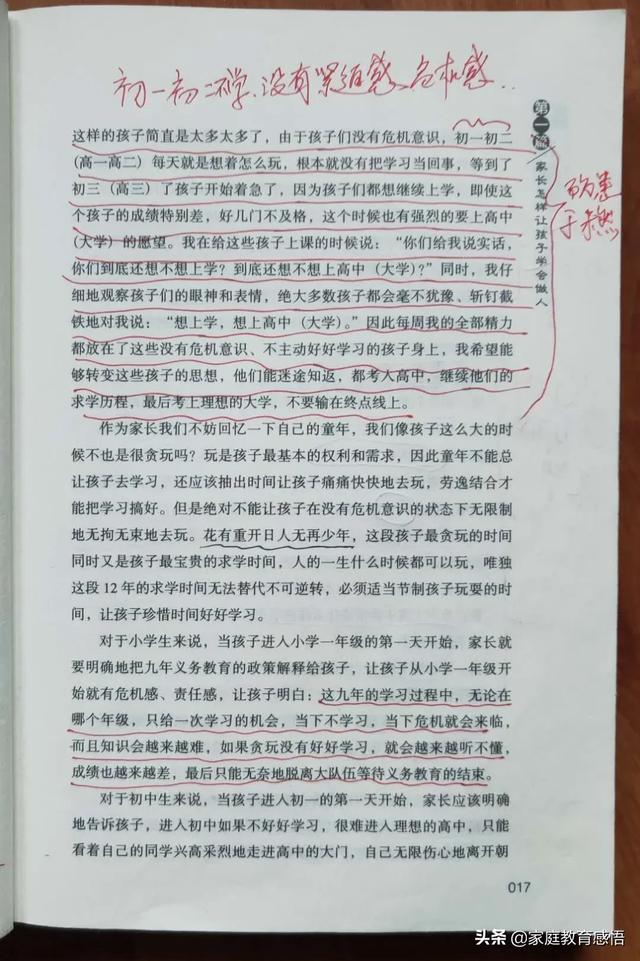 初一初二学.没有紧迫感危机感..
第一篇
家长怎样让孩子学会做人
于未然
这样的孩子简直是太多太多了，由于孩子们没有危机意识，初一初二
（高一高二）每天就是想着怎么玩，根本就没有把学习当回事，等到了
初三（高三）了孩子开始着急了，因为孩子们都想继续上学，即使这
个孩子的成绩特别差，好几门不及格，这个时候也有强烈的要上高中
（大学）的愿望。我在给这些孩子上课的时候说：“你们给我说实话，
你们到底还想不想上学？到底还想不想上高中（大学）？”同时，我仔
细地观察孩子们的眼神和表情，绝大多数孩子都会毫不犹豫、斩钉截
铁地对我说：“想上学，想上高中（大学）。”因此每周我的全部精力
都放在了这些没有危机意识、不主动好好学习的孩子身上，我希望能
够转变这些孩子的思想，他们能迷途知返，都考入高中，继续他们的
求学历程，最后考上理想的大学，不要输在终点线上。
作为家长我们不妨回忆一下自己的童年，我们像孩子这么大的时
候不也是很贪玩吗？玩是孩子最基本的权利和需求，因此童年不能总
让孩子去学习，还应该抽出时间让孩子痛痛快快地去玩，劳逸结合才
能把学习搞好。但是绝对不能让孩子在没有危机意识的状态下无限制
地无拘无束地去玩。花有重开日人无再少年，这段孩子最贪玩的时间
同时又是孩子最宝贵的求学时间，人的一生什么时候都可以玩，唯独
这段 12 年的求学时间无法替代不可逆转，必须适当节制孩子玩耍的时
间，让孩子珍惜时间好好学习。
对于小学生来说，当孩子进入小学一年级的第一天开始，家长就
要明确地把九年义务教育的政策解释给孩子，让孩子从小学一年级开
始就有危机感、责任感，让孩子明白：这九年的学习过程中，无论在
哪个年级，只给一次学习的机会，当下不学习，当下危机就会来临，
而且知识会越来越难，如果贪玩没有好好学习，就会越来越听不懂，
成绩也越来越差，最后只能无奈地脱离大队伍等待义务教育的结束。
对于初中生来说，当孩子进入初一的第一天开始，家长应该明确
地告诉孩子，进入初中如果不好好学习，很难进入理想的高中，只能
看着自己的同学兴高采烈地走进高中的大门，自己无限伤心地离开朝
017
头条 @家庭教育感悟